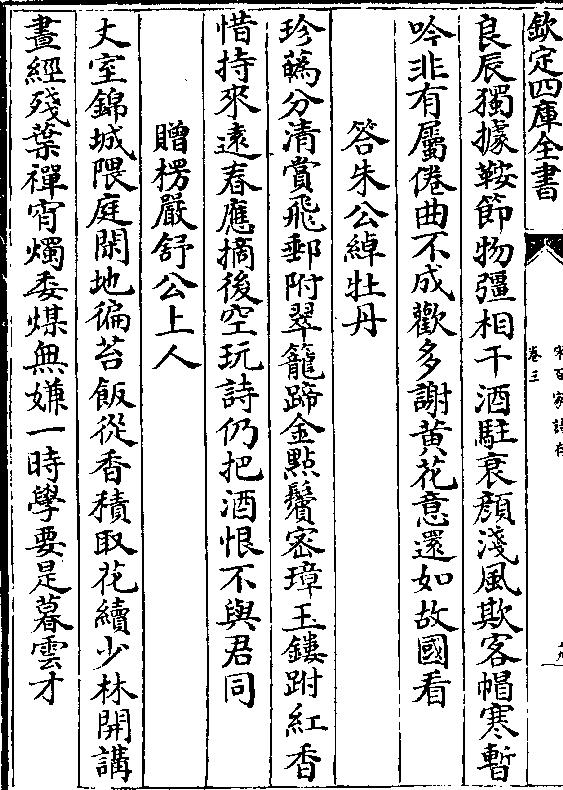 欽定四庫全書
卷三
良辰獨據鞍節物彊相干酒駐衰顔淺風欺客帽寒暫
吟非有屬倦曲不成歡多謝黄花意還如故國看
答朱公綽牡丹
珍蘤分清賞飛郵附翠籠蹄金點鬢密璋玉鏤跗紅香
惜持來遠春應摘後空玩詩仍把酒恨不與君同
贈楞嚴舒公上人
丈室錦城隈庭閑地徧苔飯從香積取花續少林開講
晝經殘葉禪宵燭委煤無嫌一時學要是暮雲才